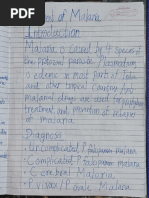 of Malaria
Introduction
Malaria is caused by 4 species of
the protozoal parasite Plasmodium
is edemic in most parts of India
and other tropical countries. Anti
malarial drugs are used for prophylaxis
treatment and prevention of relapses
of malaria
Diagnosis
• Uncomplicated P. falciparum malaria
• Complicated P. falciparum malaria
• Cerebral Malaria
• P. vivax / P. ovale Malaria